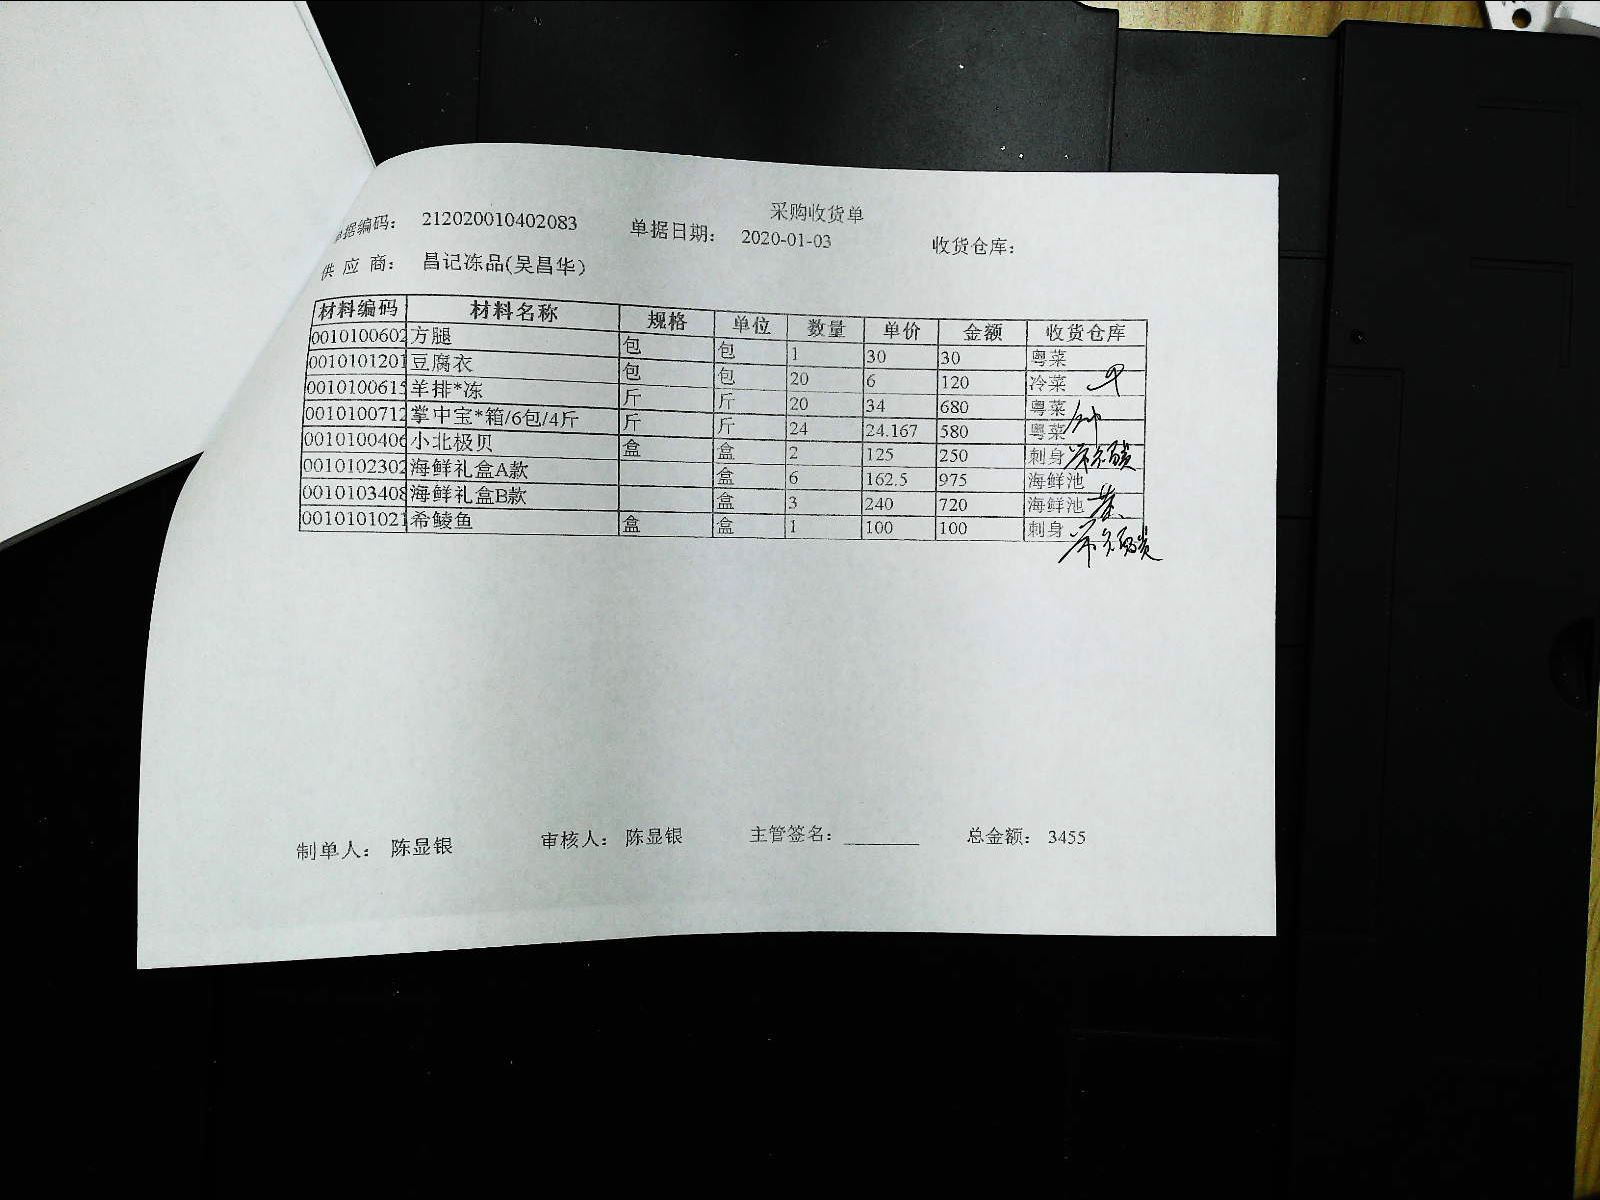 采购收货单
单据编码： 212020010402083 单据日期： 2020-01-03 收货仓库：
供 应 商： 昌记冻品(吴昌华)
材料编码 材料名称 规格 单位 数量 单价 金额 收货仓库
0010100602 方腿 包 包 1 30 30 粤菜
0010101201 豆腐衣 包 包 20 6 120 冷菜
001010061 羊排*冻 斤 斤 20 34 680 粤菜
0010100712 掌中宝*箱/6包/4斤 斤 斤 24 24.167 580 粤菜
001010040 小北极贝 盒 盒 2 125 250 刺身
0010102302 海鲜礼盒A款 盒 6 162.5 975 海鲜池
001010340 海鲜礼盒B款 盒 3 240 720 海鲜池
0010101021 希鲮鱼 盒 盒 1 100 100 刺身
制单人： 陈显银 审核人： 陈显银 主管签名： 总金额： 3455